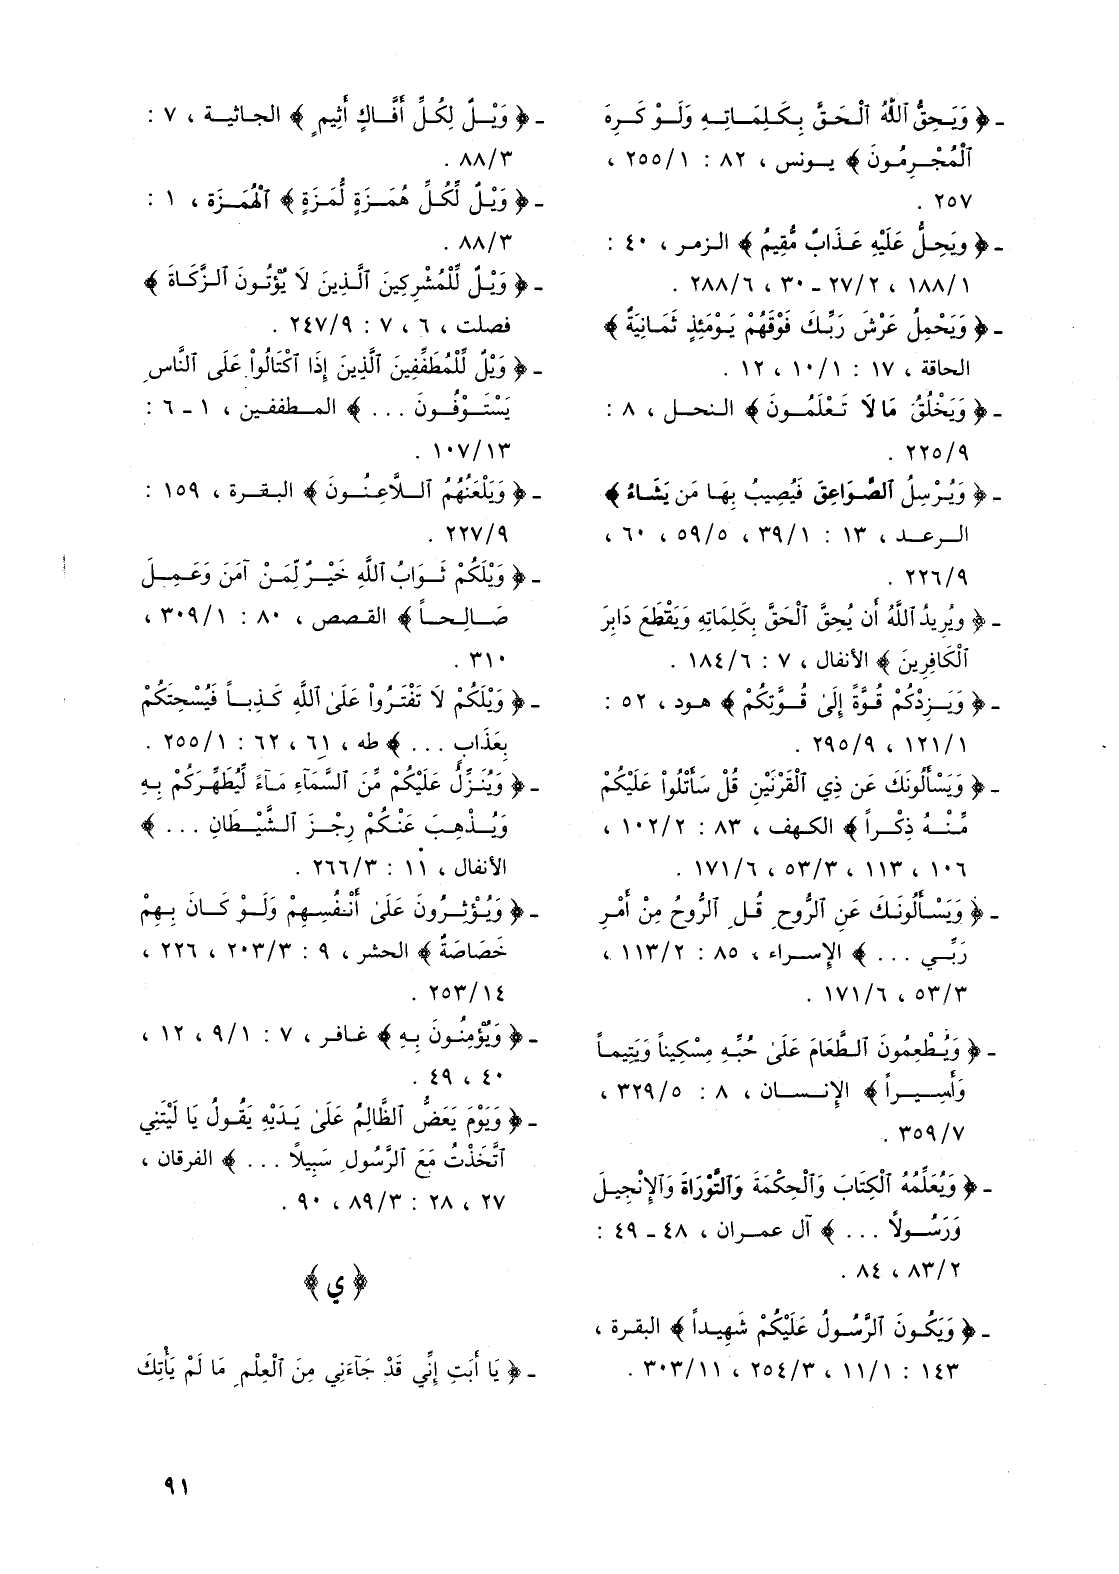 - ﴿ وَيَحِقُّ ٱللَّهُ ٱلْحَقَّ بِكَلِمَاتِهِ وَلَوْ كَرِهَ
ٱلْمُجْرِمُونَ ﴾ يونس ، ٨٢ : ٢٥٥/١ ،
٢٥٧ .
- ﴿ وَيَحِلُّ عَلَيْهِ عَذَابٌ مُّقِيمٌ ﴾ الزمر ، ٤٠ :
١٨٨/١ ، ٢٧/٢ - ٣٠ ، ٢٨٨/٦ .
- ﴿ وَيَحْمِلُ عَرْشَ رَبِّكَ فَوْقَهُمْ يَوْمَئِذٍ ثَمَانِيَةٌ ﴾
الحاقة ، ١٧ : ١٠/١ ، ١٢ .
- ﴿ وَيَخْلُقُ مَا لَا تَعْلَمُونَ ﴾ النحل ، ٨ :
٢٢٥/٩ .
- ﴿ وَيُرْسِلُ ٱلصَّوَاعِقَ فَيُصِيبُ بِهَا مَن يَشَاءُ ﴾
الرعد ، ١٣ : ٣٩/١ ، ٥٩/٥ ، ٦٠ ،
٢٢٦/٩ .
- ﴿ وَيُرِيدُ ٱللَّهُ أَن يُحِقَّ ٱلْحَقَّ بِكَلِمَاتِهِ وَيَقْطَعَ دَابِرَ
ٱلْكَافِرِينَ ﴾ الأنفال ، ٧ : ١٨٤/٦ .
- ﴿ وَيَزِدْكُمْ قُوَّةً إِلَىٰ قُوَّتِكُمْ ﴾ هود ، ٥٢ :
١٢١/١ ، ٢٩٥/٩ .
- ﴿ وَيَسْأَلُونَكَ عَن ذِي ٱلْقَرْنَيْنِ قُلْ سَأَتْلُواْ عَلَيْكُمْ
مِّنْهُ ذِكْراً ﴾ الكهف ، ٨٣ : ١٠٢/٢ ،
١٠٦ ، ١١٣ ، ٥٣/٣ ، ١٧١/٦ .
- ﴿ وَيَسْأَلُونَكَ عَنِ ٱلرُّوحِ قُلِ ٱلرُّوحُ مِنْ أَمْرِ
رَبِّي ... ﴾ الإسراء ، ٨٥ : ١١٣/٢ ،
٥٣/٣ ، ١٧١/٦ .
- ﴿ وَيُطْعِمُونَ ٱلطَّعَامَ عَلَىٰ حُبِّهِ مِسْكِيناً وَيَتِيماً
وَأَسِيراً ﴾ الإنسان ، ٨ : ٣٢٩/٥ ،
٣٥٩/٧ .
- ﴿ وَيُعَلِّمُهُ ٱلْكِتَابَ وَٱلْحِكْمَةَ وَٱلتَّوْرَاةَ وَٱلإِنْجِيلَ
وَرَسُولاً ... ﴾ آل عمران ، ٤٨ - ٤٩ :
٨٣/٢ ، ٨٤ .
- ﴿ وَيَكُونَ ٱلرَّسُولُ عَلَيْكُمْ شَهِيداً ﴾ البقرة ،
١٤٣ : ١١/١ ، ٢٥٤/٣ ، ٣٠٣/١١ .
- ﴿ وَيْلٌ لِكُلِّ أَفَّاكٍ أَثِيمٍ ﴾ الجاثية ، ٧ :
٨٨/٣ .
- ﴿ وَيْلٌ لِّكُلِّ هُمَزَةٍ لُّمَزَةٍ ﴾ ٱلْهُمَزة ، ١ :
٨٨/٣ .
- ﴿ وَيْلٌ لِّلْمُشْرِكِينَ ٱلَّذِينَ لَا يُؤْتُونَ ٱلزَّكَاةَ ﴾
فصلت ، ٦ ، ٧ : ٢٤٧/٩ .
- ﴿ وَيْلٌ لِّلْمُطَفِّفِينَ ٱلَّذِينَ إِذَا ٱكْتَالُواْ عَلَى ٱلنَّاسِ
يَسْتَوْفُونَ ... ﴾ المطففين ، ١ - ٦ :
١٠٧/١٣ .
- ﴿ وَيَلْعَنُهُمُ ٱللَّاعِنُونَ ﴾ البقرة ، ١٥٩ :
٢٢٧/٩ .
- ﴿ وَيْلَكُمْ ثَوَابُ ٱللَّهِ خَيْرٌ لِّمَنْ آمَنَ وَعَمِلَ
صَالِحاً ﴾ القصص ، ٨٠ : ٣٠٩/١ ،
٣١٠ .
- ﴿ وَيْلَكُمْ لَا تَفْتَرُواْ عَلَىٰ ٱللَّهِ كَذِباً فَيُسْحِتَكُمْ
بِعَذَابٍ ... ﴾ طه ، ٦١ ، ٦٢ : ٢٥٥/١ .
- ﴿ وَيُنَزِّلُ عَلَيْكُمْ مِّنَ ٱلسَّمَآءِ مَآءً لِّيُطَهِّرَكُمْ بِهِ
وَيُذْهِبَ عَنْكُمْ رِجْزَ ٱلشَّيْطَانِ ... ﴾
الأنفال ، ١١ : ٢٦٦/٣ .
- ﴿ وَيُؤْثِرُونَ عَلَىٰ أَنْفُسِهِمْ وَلَوْ كَانَ بِهِمْ
خَصَاصَةٌ ﴾ الحشر ، ٩ : ٢٠٣/٣ ، ٢٢٦ ،
٢٥٣/١٤ .
- ﴿ وَيُؤْمِنُونَ بِهِ ﴾ غافر ، ٧ : ٩/١ ، ١٢ ،
٤٠ ، ٤٩ .
- ﴿ وَيَوْمَ يَعَضُّ ٱلظَّالِمُ عَلَىٰ يَدَيْهِ يَقُولُ يَا لَيْتَنِي
ٱتَّخَذْتُ مَعَ ٱلرَّسُولِ سَبِيلاً ... ﴾ الفرقان ،
٢٧ ، ٢٨ : ٨٩/٣ ، ٩٠ .
﴿ ي ﴾
- ﴿ يَا أَبَتِ إِنِّي قَدْ جَآءَنِي مِنَ ٱلْعِلْمِ مَا لَمْ يَأْتِكَ
٩١